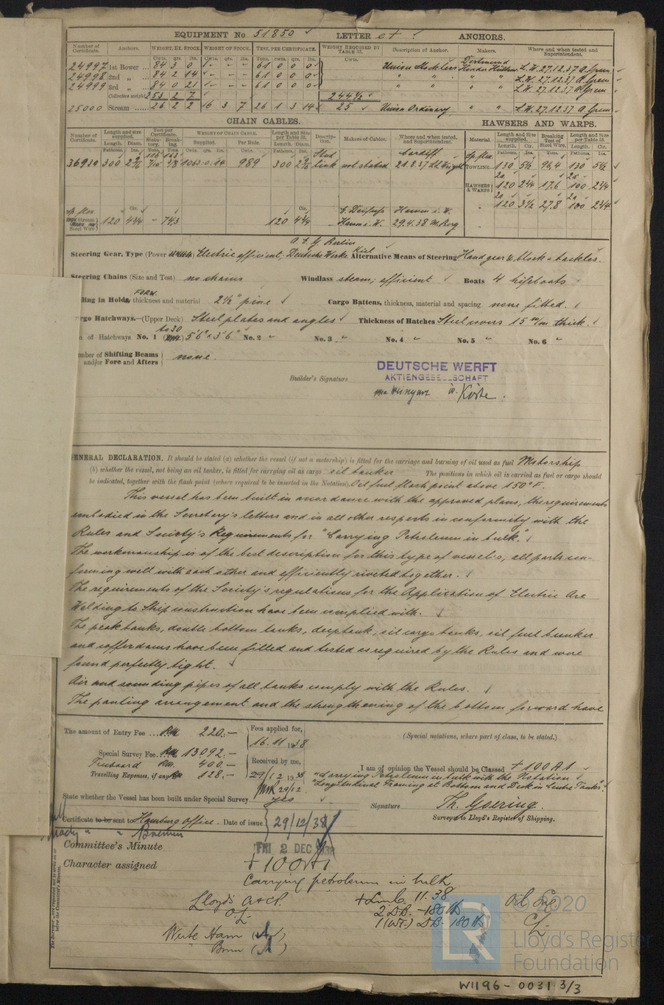 EQUIPMENT No. 31850 LETTER at ANCHORS.
Number of Certificate. Anchors. WEIGHT, EX. STOCK. WEIGHT OF STOCK. TEST, PER CERTIFICATE. WEIGHT REQUIRED BY TABLE 53. Description of Anchor. Makers. Where and when tested and Superintendent.
24997 1st Bower 84 3 0 61 0 0 0 Union Stockless Dortmund L.W. 27.12.37 A. Green
24998 2nd 84 2 14 61 0 0 0 L.W. 27.12.37 A. Green
24999 3rd 84 0 21 61 0 0 0 L.W. 27.12.37 A. Green
244½
25000 Stream 26 2 2 6 3 7 26 1 3 14 25 Union Ordinary L.W. 27.12.37 A. Green
CHAIN CABLES. HAWSERS AND WARPS.
Number of Certificate. Length and size supplied. Test per Certificate WEIGHT OF CHAIN CABLE. Length and size per Table 53. Description. Makers of Cables. Where and when tested, and Superintendent. Material. Length and size supplied. Breaking Test of Hawser. Length and size per Table 53.
36930 300 989 300 link not stated Cardiff
TOWLINE 130 5¼ 96,4 130 5¼
HAWSERS & WARPS 120 2¼ 17,6 100 2¼
120 3½ 27,8 100 2¼
120 4¼ 74,3 120 4¼ Hamm i. W. 29.4.38
Steering Gear, Type (Power Electric efficient, Deutsche Werke Kiel Alternative Means of Steering Hand gear & block & tackles.
Steering Chains (Size and Test) no chains Windlass steam; efficient Boats 4 lifeboats
ling in Holds, thickness and material 2½" pine Cargo Battens, thickness, material and spacing none fitted.
rgo Hatchways.—(Upper Deck) Steel plates and angles Thickness of Hatches Steel covers 15 m/m thick.
of Hatchways No. 1 5'6" x 3'6" No. 2 " No. 3 " No. 4 " No. 5 " No. 6 "
mber of Shifting Beams and/or Fore and Afters none.
Builder's Signature DEUTSCHE WERFT
AKTIENGESELLSCHAFT
GENERAL DECLARATION. It should be stated (a) whether the vessel (if not a motorship) is fitted for the carriage and burning of oil used as fuel Motorship
(b) whether the vessel, not being an oil tanker, is fitted for carrying oil as cargo oil tanker The positions in which oil is carried as fuel or cargo should
be indicated, together with the flash point (where required to be inserted in the Notation) Oil fuel flash point above 150°F.
This vessel has been built in accordance with the approved plans, the requirements
embodied in the Secretary's letters and in all other respects in conformity with the
Rules and Society's Requirements for "Carrying Petroleum in bulk".
The workmanship is of the best description for this type of vessels, all parts con-
forming well with each other and efficiently riveted together.
The requirements of the Society's regulations for the Application of Electric Arc
Welding to Ship construction have been complied with.
The peak tanks, double bottom tanks, deeptank, oil cargo tanks, oil fuel bunker
and cofferdams have been filled and tested as required by the Rules and were
found perfectly tight.
Air and sounding pipes of all tanks comply with the Rules.
The panting arrangement and the strengthening of the bottom forward have
The amount of Entry Fee ... RM 220.— Fees applied for, (Special notations, where part of class, to be stated.)
16.11.1938
Special Survey Fee ... RM 13092.— Received by me,
Freeboard RM. 400.— I am of opinion the Vessel should be Classed +100A1
Travelling Expenses, if any RM 128.— 29/12 1938 "Carrying Petroleum in bulk with the Notation
"Longitudinal Framing at Bottom and Deck in Centre Tanks"
State whether the Vessel has been built under Special Survey Yes Signature Th. Goering.
Surveyor to Lloyd's Register of Shipping.
Certificate to be sent to Hamburg Office. Date of issue 29/12/38
Committee's Minute FRI 2 DEC 1938
Character assigned +100A1
Carrying petroleum in bulk
Lloyds A&CP. +Lmb. 11.38 Oil Eng
O.L. 2 DB - 180 lb C/L
1(WT) DB 180 lb
Write Ham
Brm
© 2020
Lloyd's Register
Foundation
W1196 - 0031 3/3